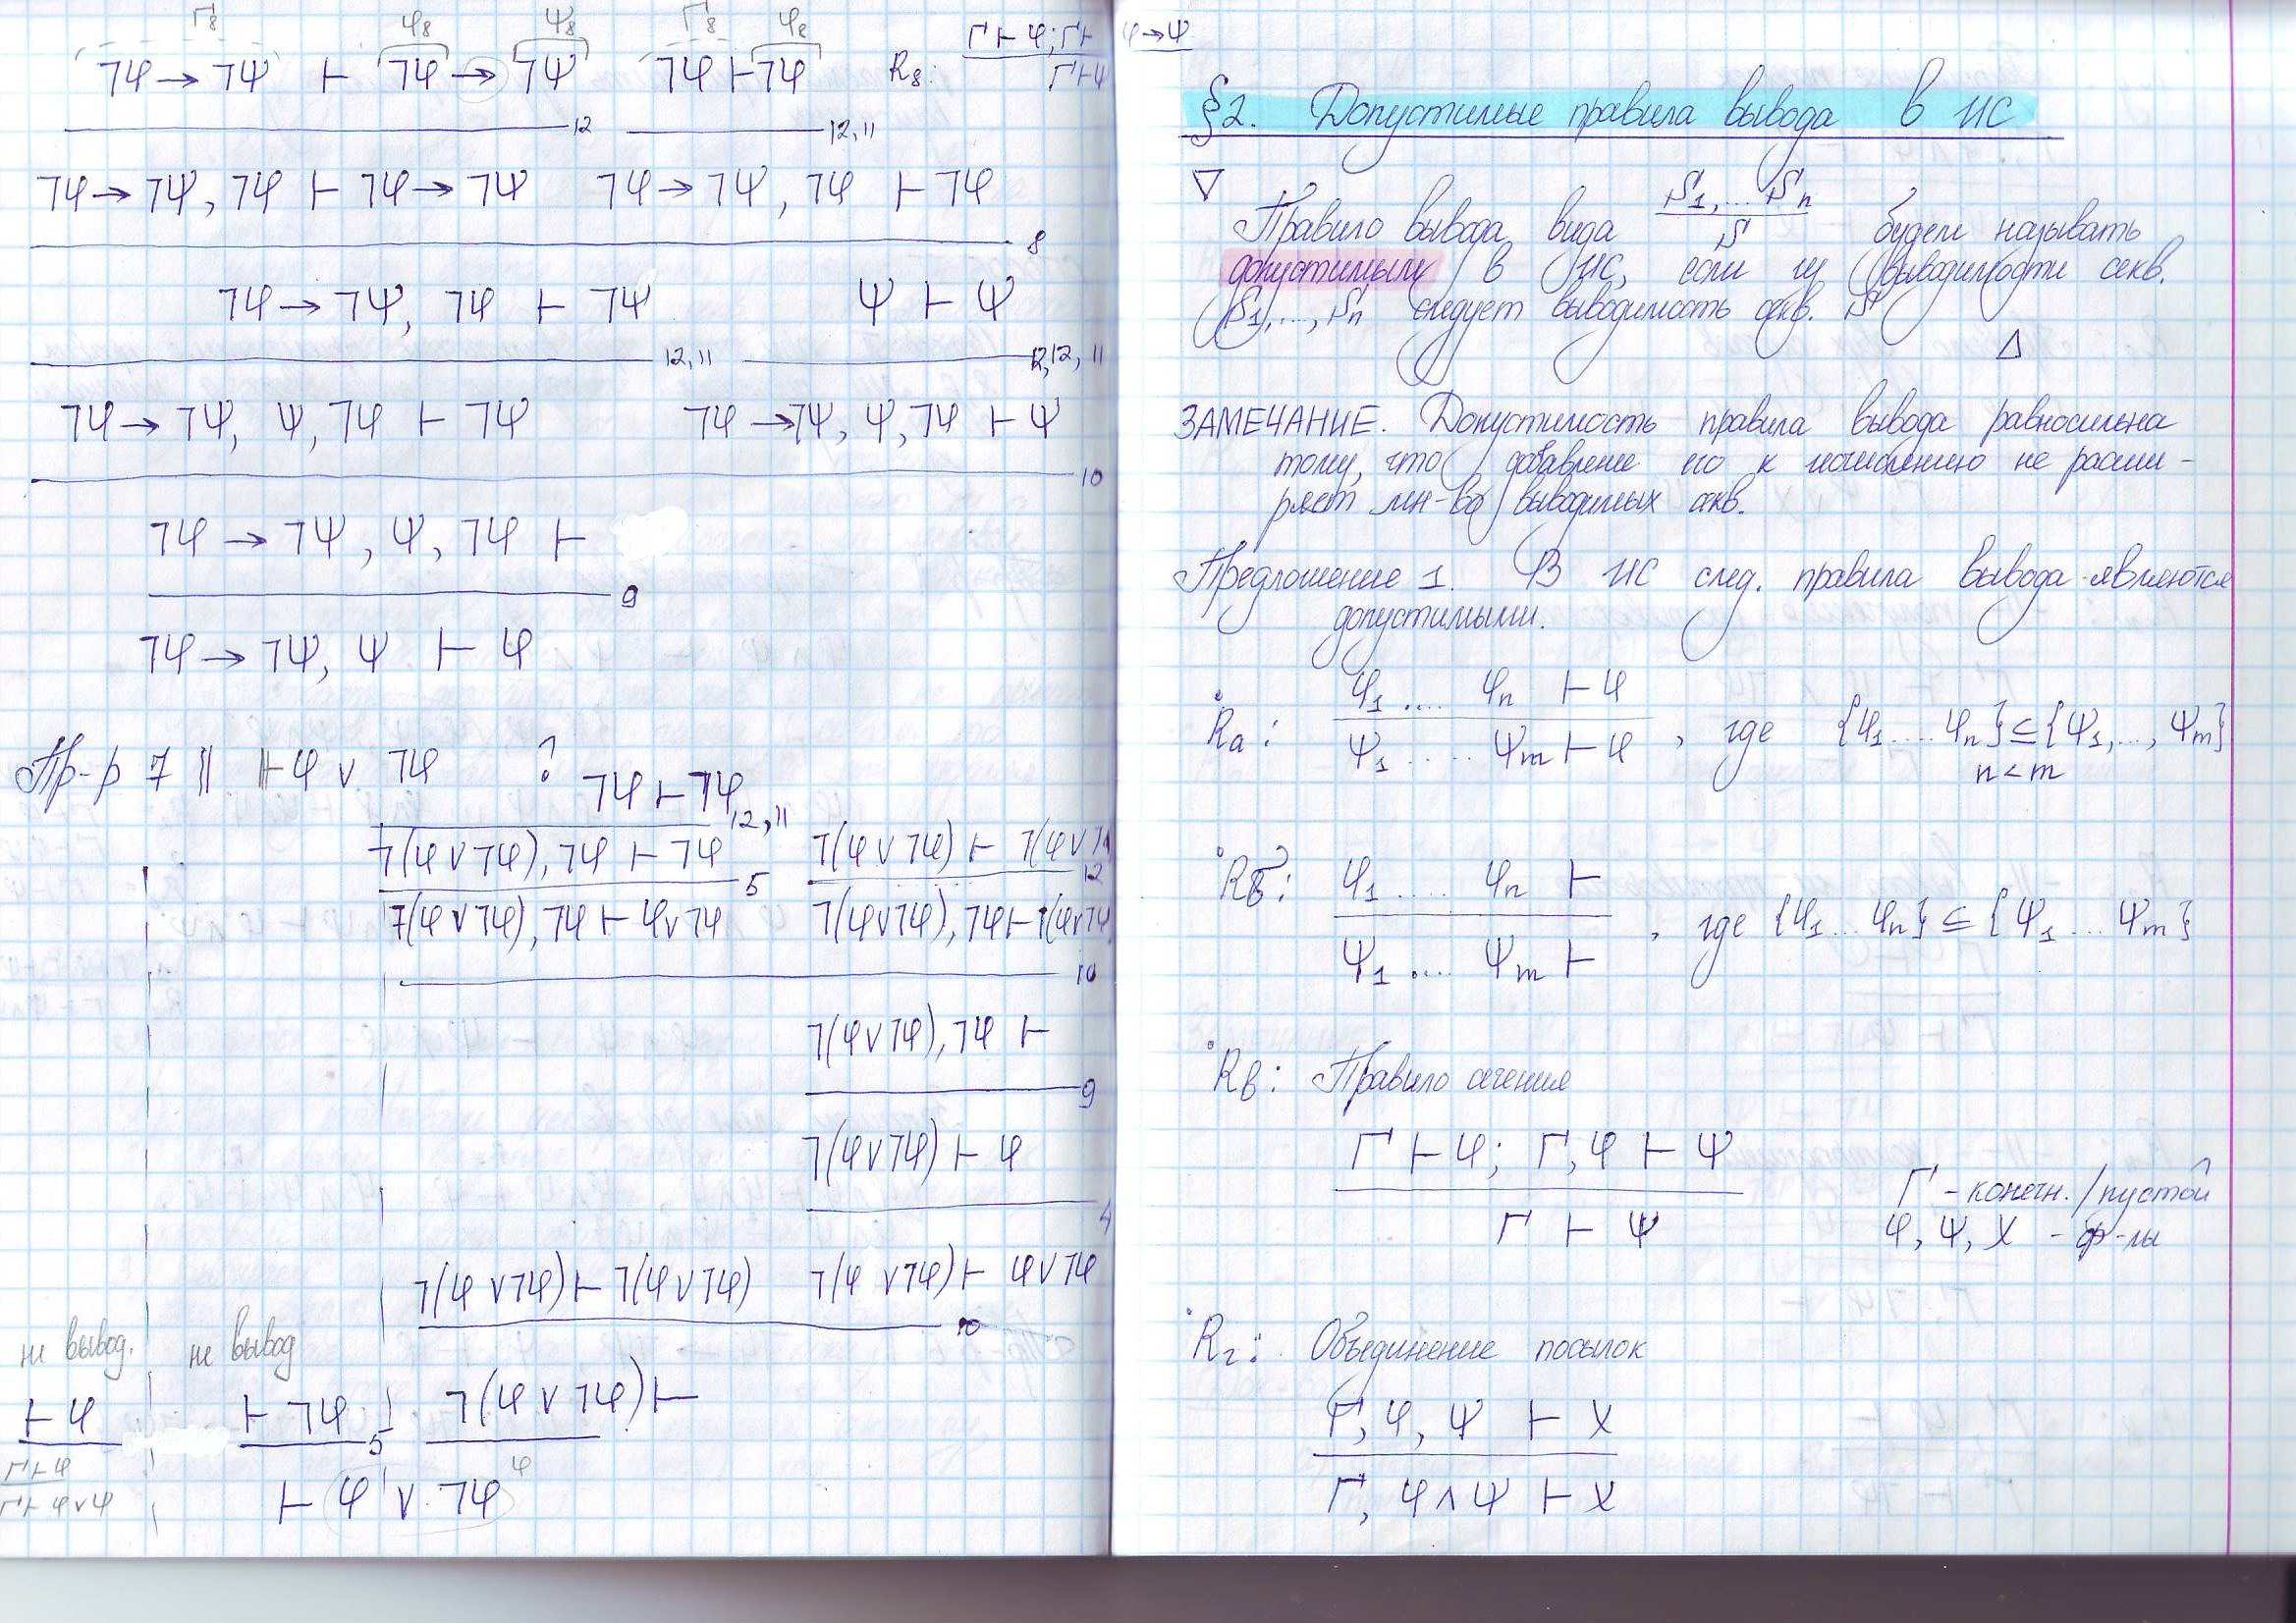 Γ₈ φ₈ ψ₈ Γ₈ φ₈
¬φ → ¬ψ ⊢ ¬φ → ¬ψ ¬φ ⊢ ¬φ R₈: Γ ⊢ φ; Γ ⊢ φ→ψ
Γ ⊢ ψ
12 12, 11
¬φ → ¬ψ, ¬φ ⊢ ¬φ → ¬ψ ¬φ → ¬ψ, ¬φ ⊢ ¬φ
8
¬φ → ¬ψ, ¬φ ⊢ ¬ψ ψ ⊢ ψ
12, 11 12, 12, 11
¬φ → ¬ψ, ψ, ¬φ ⊢ ¬ψ ¬φ → ¬ψ, ψ, ¬φ ⊢ ψ
10
¬φ → ¬ψ, ψ, ¬φ ⊢
9
¬φ → ¬ψ, ψ ⊢ φ
Пр-р 7 || ⊢ φ ∨ ¬φ ?
¬φ ⊢ ¬φ
12, 11
¬(φ ∨ ¬φ), ¬φ ⊢ ¬φ ¬(φ ∨ ¬φ) ⊢ ¬(φ ∨ ¬φ
5 12
¬(φ ∨ ¬φ), ¬φ ⊢ φ ∨ ¬φ ¬(φ ∨ ¬φ), ¬φ ⊢ ¬(φ ∨ ¬φ
10
¬(φ ∨ ¬φ), ¬φ ⊢
9
¬(φ ∨ ¬φ) ⊢ φ
4
¬(φ ∨ ¬φ) ⊢ ¬(φ ∨ ¬φ) ¬(φ ∨ ¬φ) ⊢ φ ∨ ¬φ
10
не вывод. не вывод
⊢ φ ⊢ ¬φ ¬(φ ∨ ¬φ) ⊢
5
Γ ⊢ φ
Γ ⊢ φ ∨ ψ
⊢ φ ∨ ¬φ
§2. Допустимые правила вывода в ИС
∇
Правило вывода вида S₁, ... Sₙ / S будем называть
допустимым в ИС, если из выводимости секв.
S₁, ..., Sₙ следует выводимость секв. S
Δ
ЗАМЕЧАНИЕ. Допустимость правила вывода равносильна
тому, что добавление его к исчислению не расши-
ряет мн-во выводимых секв.
Предложение 1. В ИС след. правила вывода являются
допустимыми.
φ₁ .... φₙ ⊢ φ
Rа: , где {φ₁ .... φₙ} ⊆ {ψ₁, ..., ψₘ}
ψ₁ ..... ψₘ ⊢ φ n < m
φ₁ .... φₙ ⊢
Rб: , где {φ₁ ... φₙ} ⊆ {ψ₁ ... ψₘ}
ψ₁ .... ψₘ ⊢
Rв: Правило сечения
Γ ⊢ φ; Γ, φ ⊢ ψ
Γ ⊢ ψ
Γ - конечн. / пустой
φ, ψ, χ - ф-лы
Rг: Объединение посылок
Γ, φ, ψ ⊢ χ
Γ, φ ∧ ψ ⊢ χ